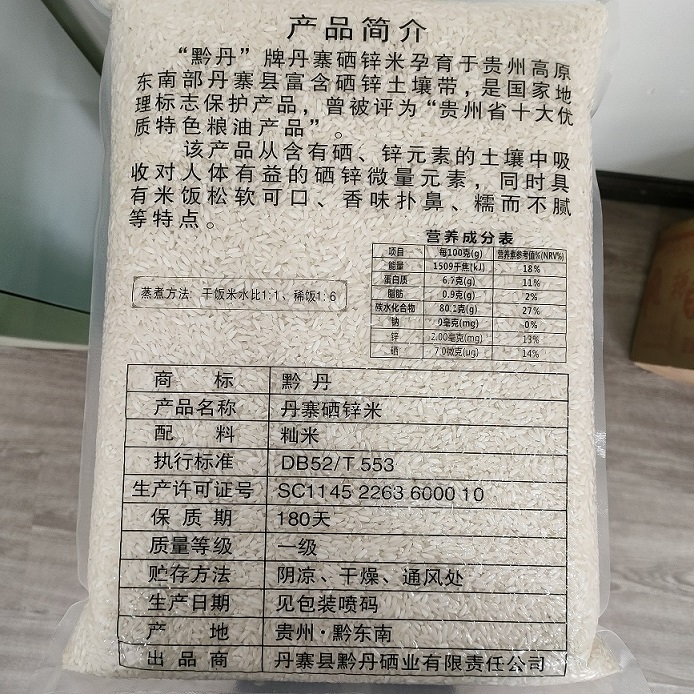 产品简介
“黔丹”牌丹寨硒锌米孕育于贵州高原
东南部丹寨县富含硒锌土壤带，是国家地
理标志保护产品，曾被评为“贵州省十大优
质特色粮油产品”。
该产品从含有硒、锌元素的土壤中吸
收对人体有益的硒锌微量元素，同时具
有米饭松软可口、香味扑鼻、糯而不腻
等特点。
营养成分表
项目 每100克(g) 营养素参考值%(NRV%)
能量 1509千焦(kJ) 18%
蛋白质 6.7克(g) 11%
脂肪 0.9克(g) 2%
碳水化合物 80.1克(g) 27%
钠 0毫克(mg) 0%
锌 2.00毫克(mg) 13%
硒 7.0微克(ug) 14%
蒸煮方法: 干饭米水比1:1、稀饭1:6
商标 黔丹
产品名称 丹寨硒锌米
配料 籼米
执行标准 DB52/T 553
生产许可证号 SC1145 2263 6000 10
保质期 180天
质量等级 一级
贮存方法 阴凉、干燥、通风处
生产日期 见包装喷码
产地 贵州·黔东南
出品商 丹寨县黔丹硒业有限责任公司